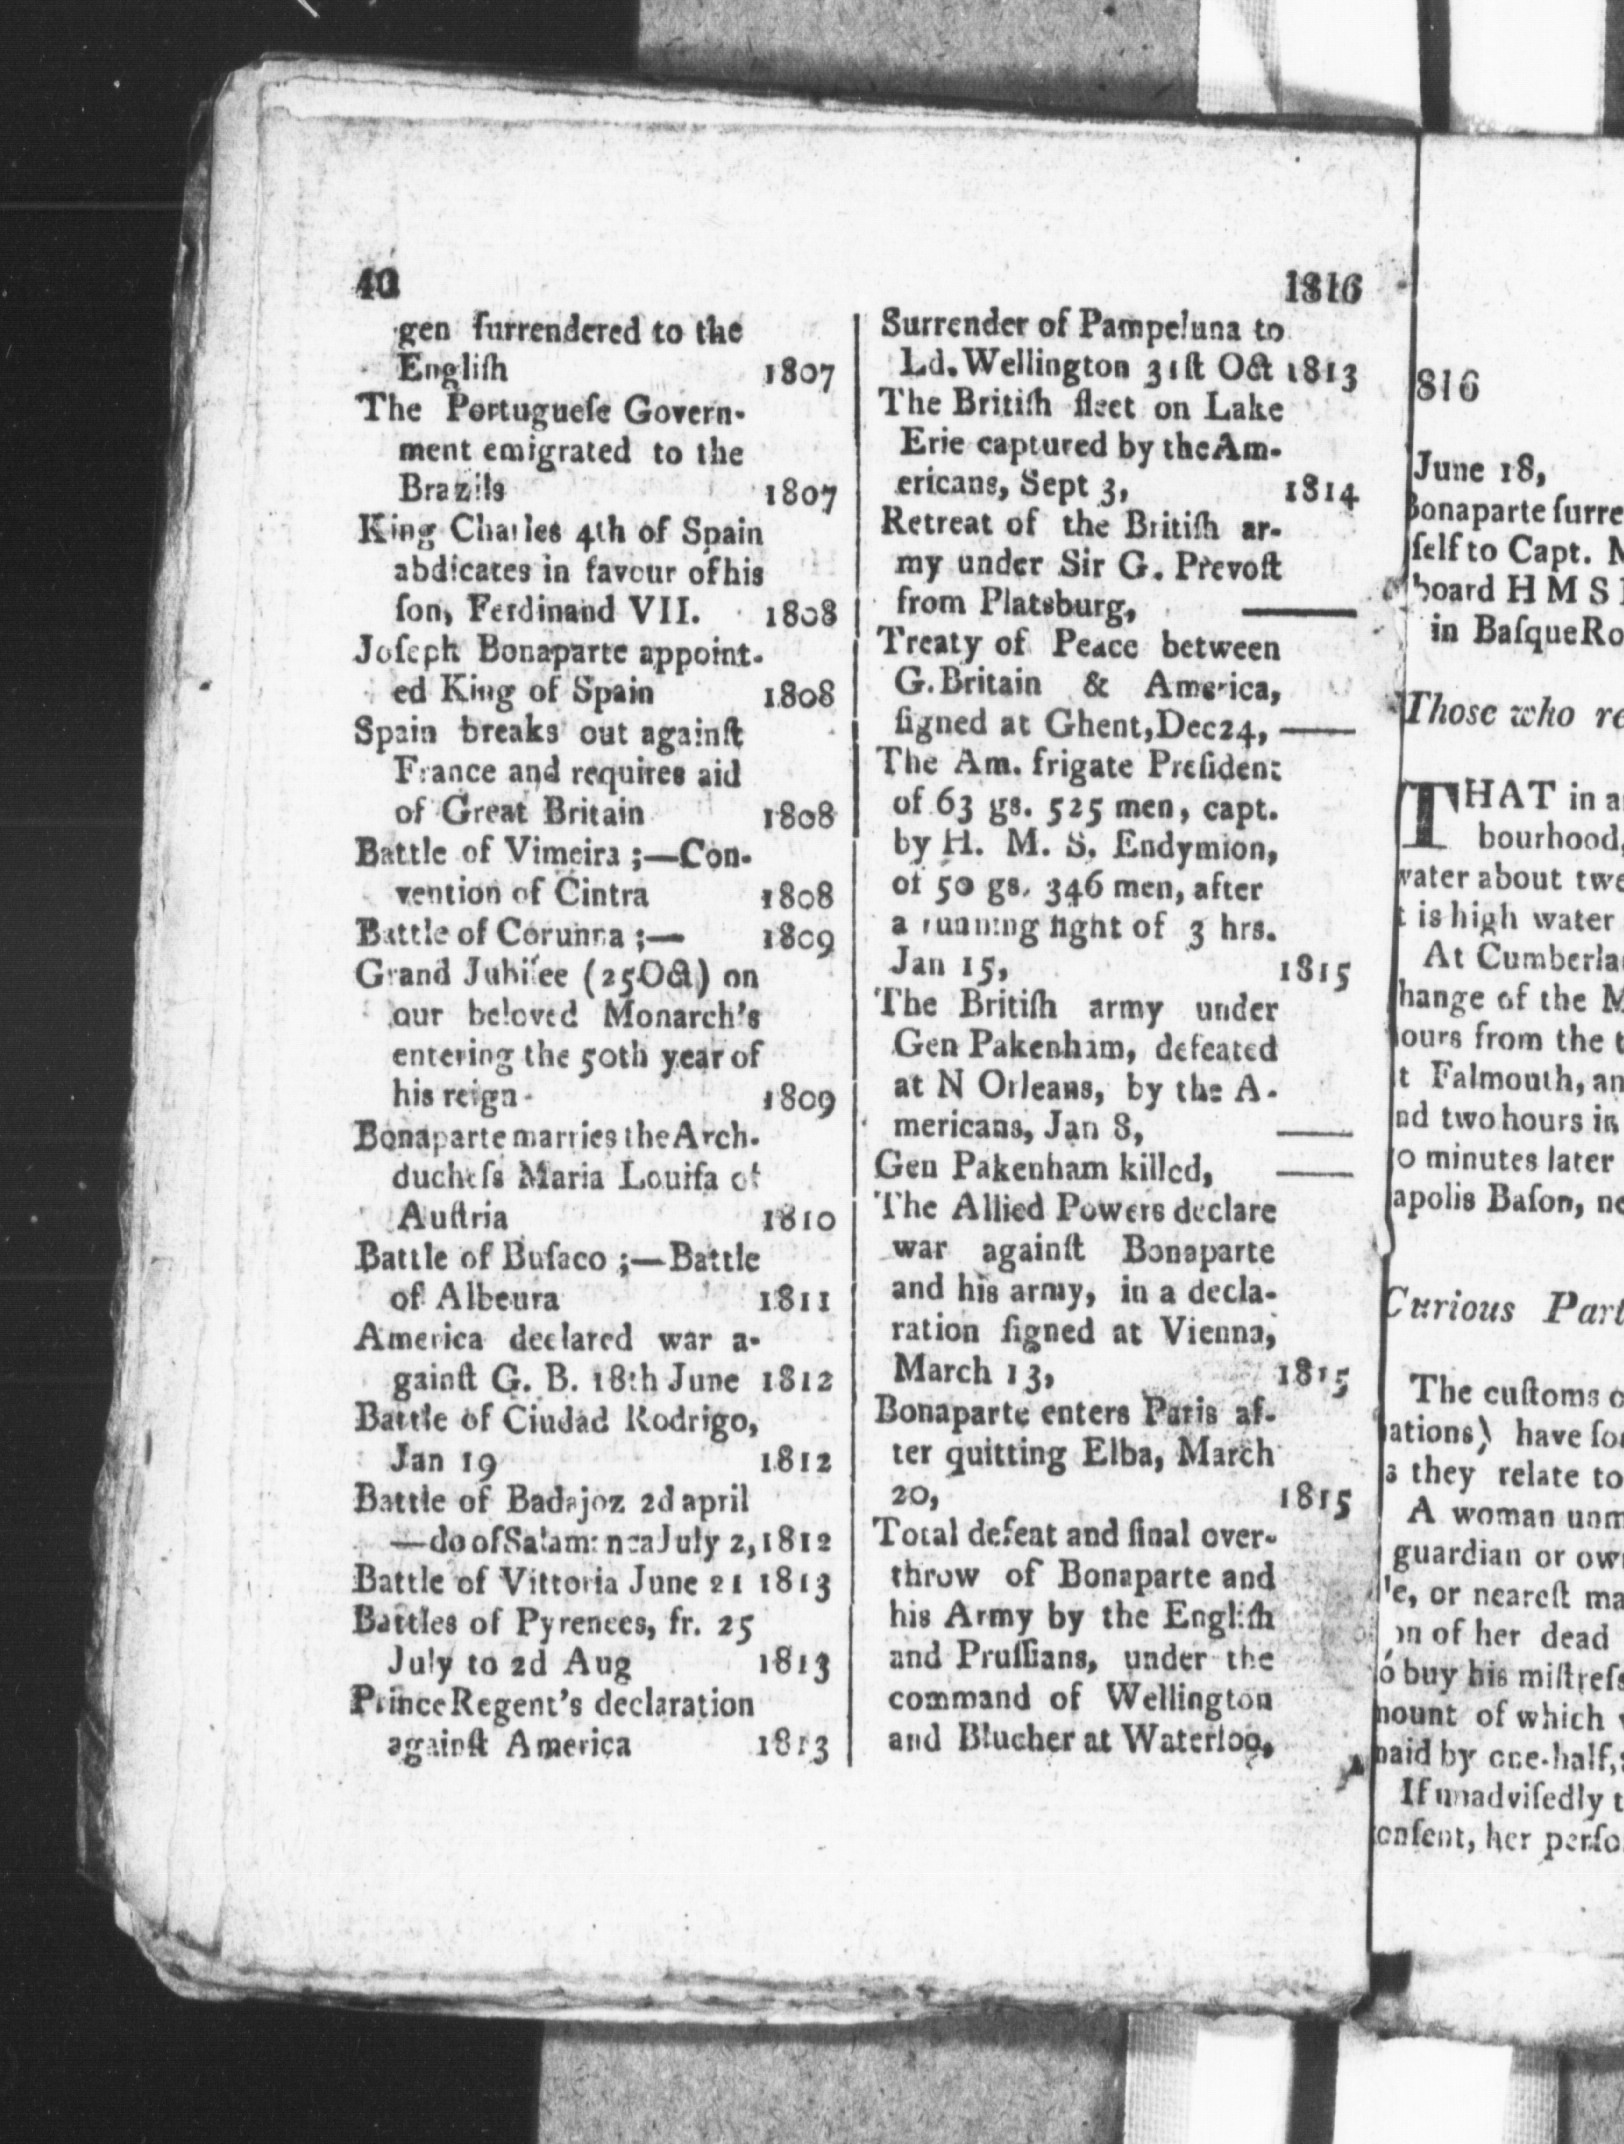 40
1816
gen ſurrendered to the
Engliſh 1807
The Portugueſe Govern-
ment emigrated to the
Brazils 1807
King Charles 4th of Spain
abdicates in favour of his
ſon, Ferdinand VII. 1808
Joſeph Bonaparte appoint-
ed King of Spain 1808
Spain breaks out againſt
France and requires aid
of Great Britain 1808
Battle of Vimeira ;—Con-
vention of Cintra 1808
Battle of Corunna ;— 1809
Grand Jubilee (25 Oct) on
our beloved Monarch's
entering the 50th year of
his reign 1809
Bonaparte marries the Arch-
ducheſs Maria Louiſa of
Auſtria 1810
Battle of Buſaco ;—Battle
of Albeura 1811
America declared war a-
gainſt G. B. 18th June 1812
Battle of Ciudad Rodrigo,
Jan 19 1812
Battle of Badajoz 2d april
—do of Salamanca July 2, 1812
Battle of Vittoria June 21 1813
Battles of Pyrenees, fr. 25
July to 2d Aug 1813
Prince Regent's declaration
againſt America 1813
Surrender of Pampeluna to
Ld. Wellington 31ſt Oct 1813
The Britiſh fleet on Lake
Erie captured by the Am-
ericans, Sept 3, 1814
Retreat of the Britiſh ar-
my under Sir G. Prevoſt
from Platsburg, ——
Treaty of Peace between
G. Britain & America,
ſigned at Ghent, Dec 24, ——
The Am. frigate Preſident
of 63 gs. 525 men, capt.
by H. M. S. Endymion,
of 50 gs. 346 men, after
a running fight of 3 hrs.
Jan 15, 1815
The Britiſh army under
Gen Pakenham, defeated
at N Orleans, by the A-
mericans, Jan 8, ——
Gen Pakenham killed, ——
The Allied Powers declare
war againſt Bonaparte
and his army, in a decla-
ration ſigned at Vienna,
March 13, 1815
Bonaparte enters Paris af-
ter quitting Elba, March
20, 1815
Total defeat and final over-
throw of Bonaparte and
his Army by the Engliſh
and Pruſſians, under the
command of Wellington
and Blucher at Waterloo,
816
June 18,
Bonaparte ſurre
ſelf to Capt. M
board H M S
in Baſque Ro
Thoſe who re
THAT in a
bourhood,
water about twe
t is high water
At Cumberla
hange of the M
ours from the t
t Falmouth, an
nd two hours in
o minutes later
apolis Baſon, ne
Curious Part
The cuſtoms o
ations) have ſo
s they relate to
A woman unm
guardian or ow
e, or neareſt ma
on of her dead
o buy his miſtreſs
nount of which
paid by one-half,
If unadviſedly t
onſent, her perſo